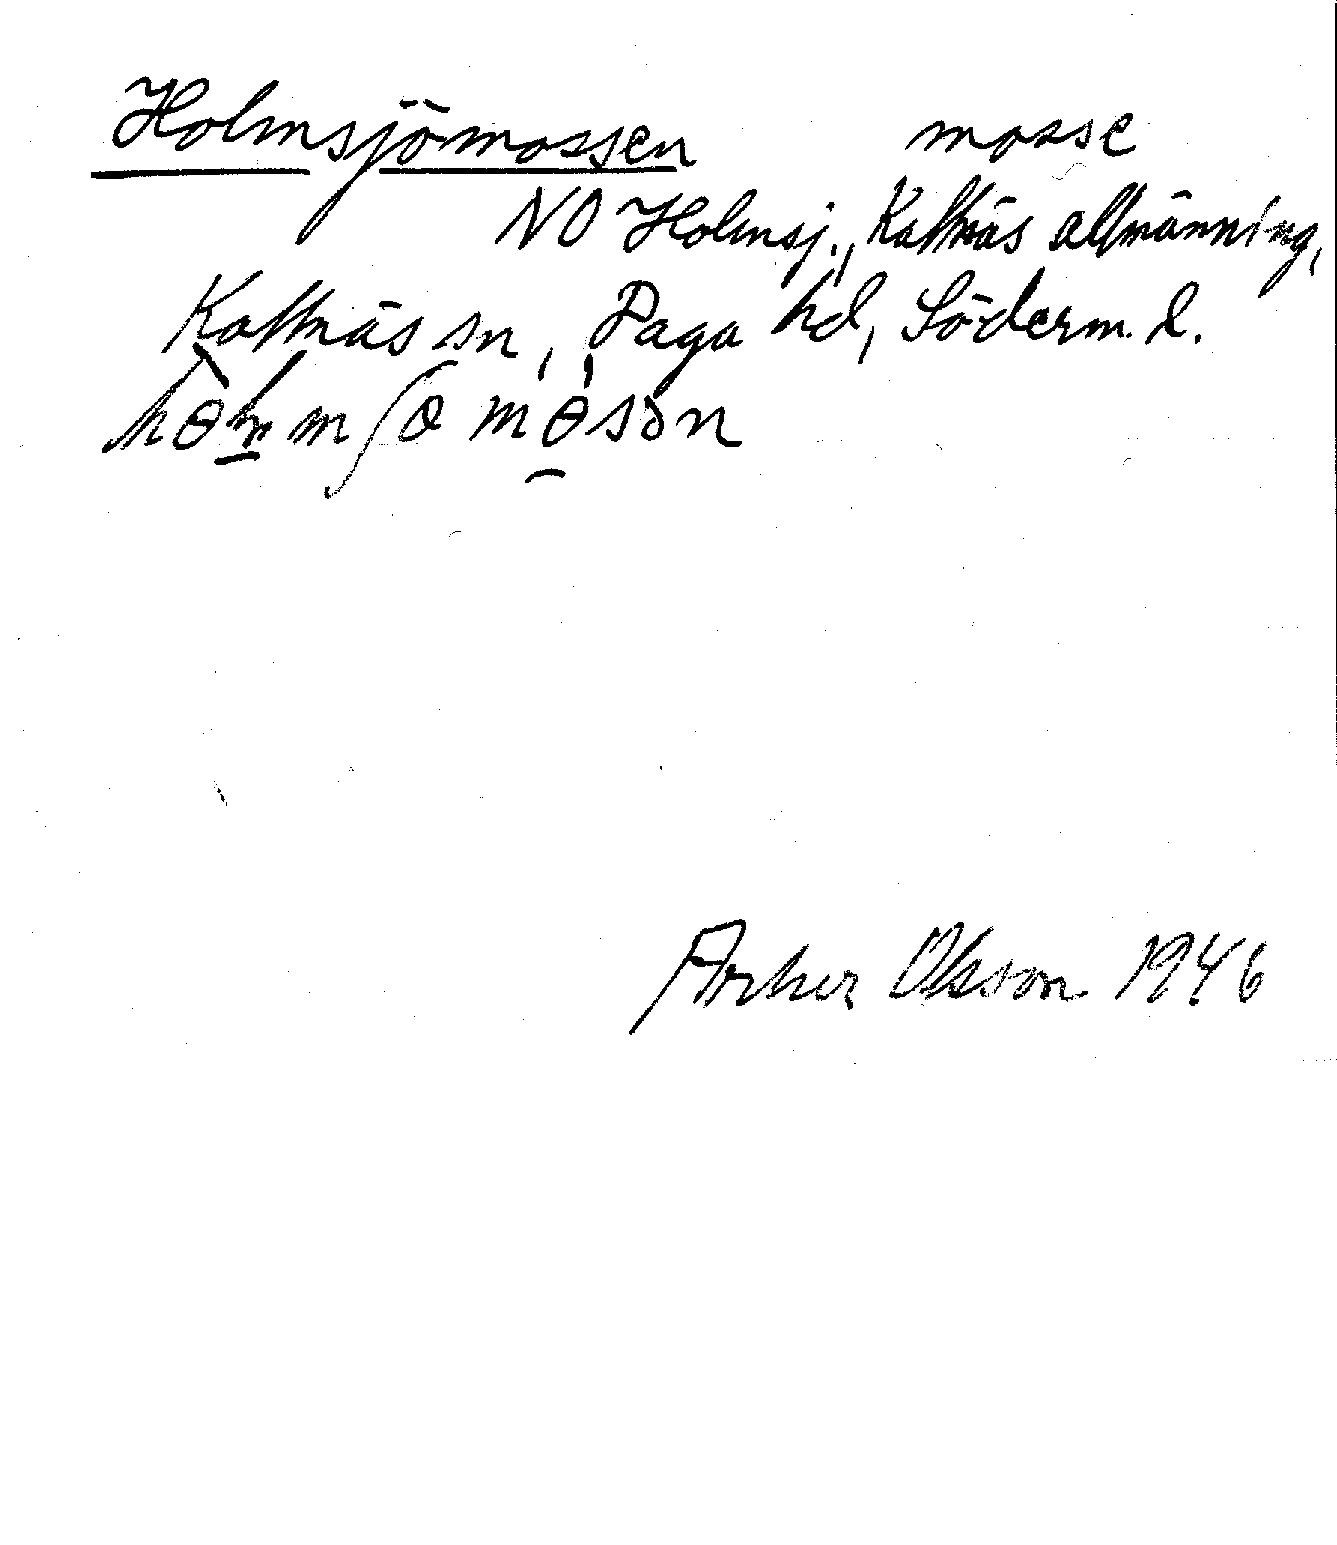 Holmsjömossen mosse
NO Holmsj., Kattnäs allmänning,
Kattnäs sn, Daga hd, Söderm. l.
Arher Olsson 1946